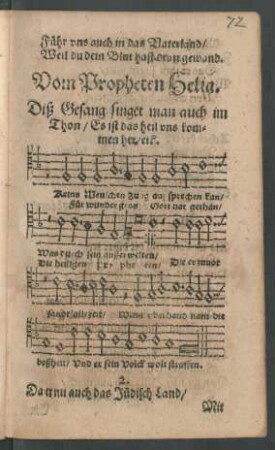 72
Führ vns auch in das Vaterland/
Weil du dein Blut hast dran gewand.
Vom Propheten Helia.
Diß Gesang singet man auch im
Thon/ Es ist das heil vns kom-
men her/ etc.
Keins Menschen Zung auß sprechen kan/
Für wunder Gott hat gethan/
Was durch sein außerwelten/
Die heiligen Pr- phe ten/ Die er zuuor
allezeit/ Wenn vberhand nam die
boßheit/ Vnd er sein Volck wolt straffen.
2.
Da er nu auch das Jüdisch Land/
Mit